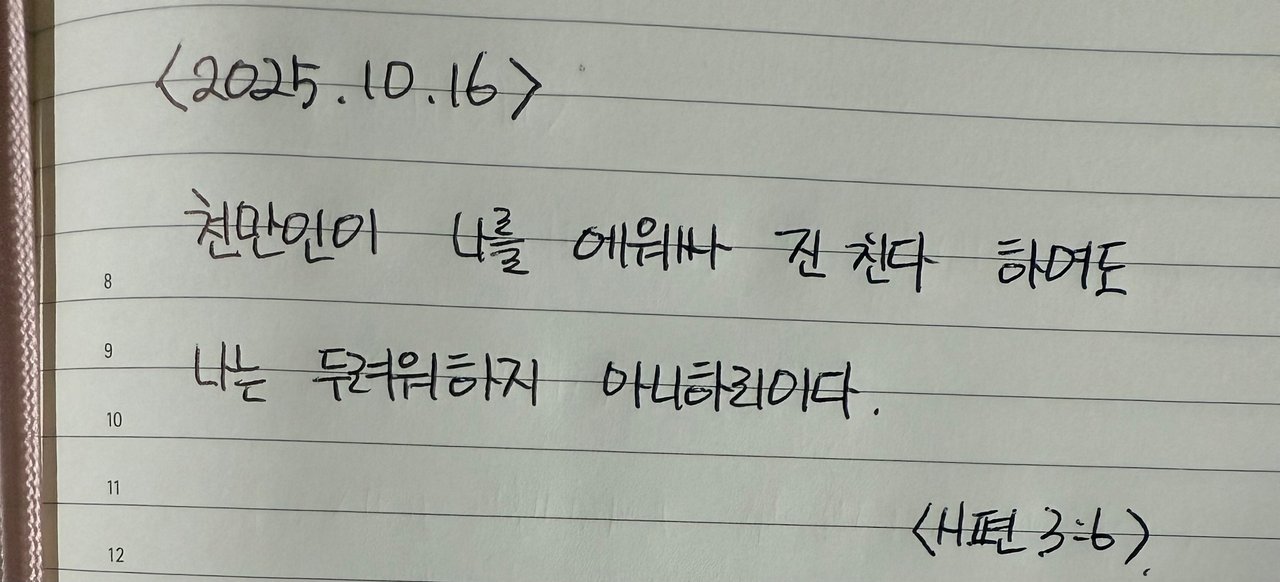 <2025.10.16>
천만인이 나를 에워싸 진 친다 하여도
8
9
나는 두려워하지 아니하리이다.
10
11
<시편 3:6>
12